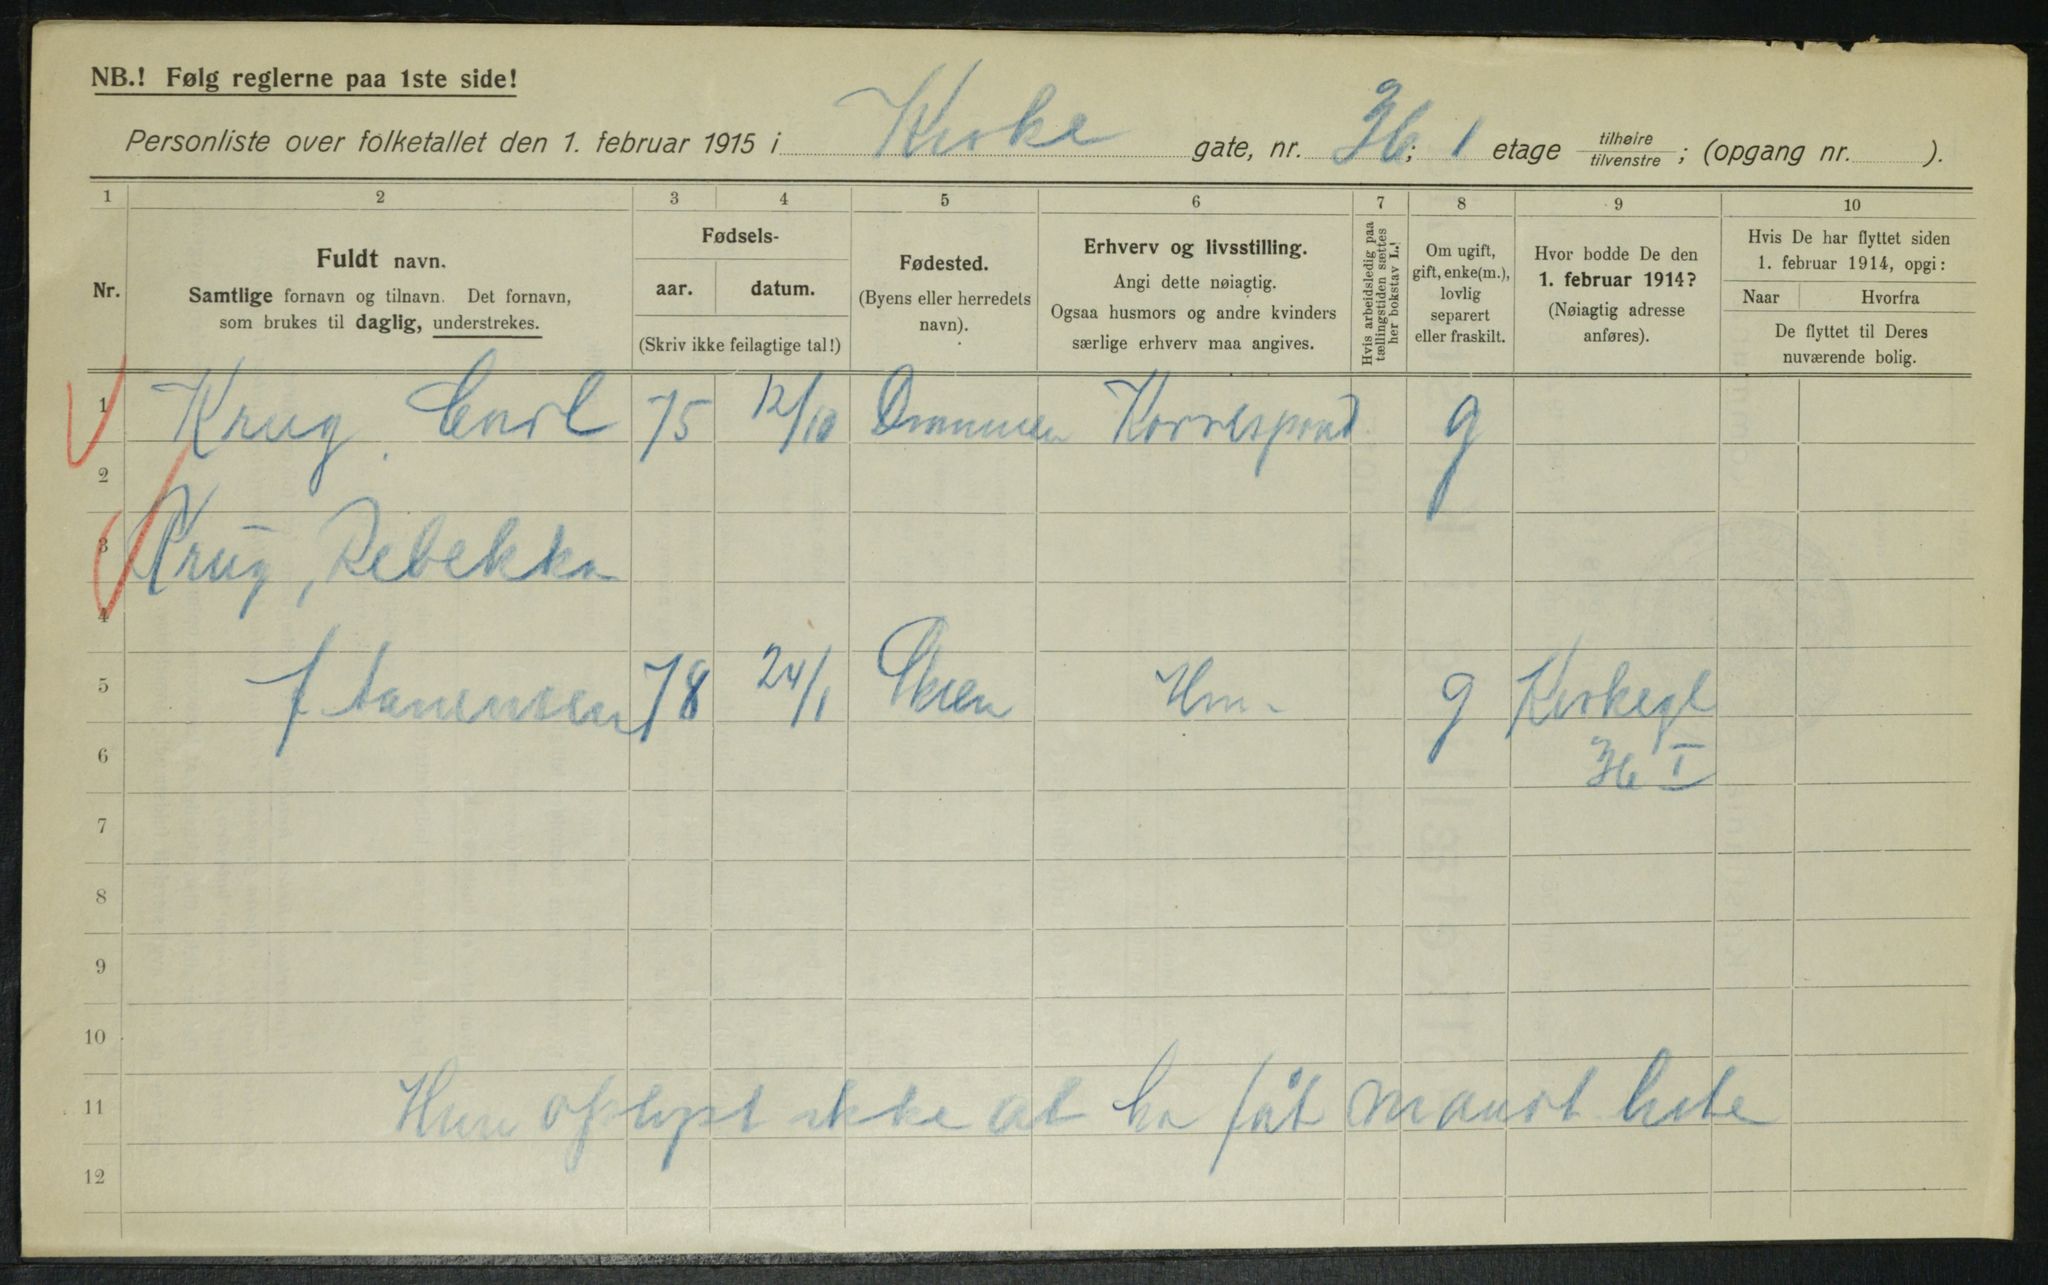 NB.! Følg reglerne paa 1ste side!
Personliste over folketallet den 1. februar 1915 i Kirke gate, nr. 36; 1 etage tilhøire/tilvenstre; (opgang nr. ).
1 2 3 4 5 6 7 8 9 10
Nr.
Fuldt navn.
Samtlige fornavn og tilnavn. Det fornavn,
som brukes til daglig, understrekes.
Fødsels-
aar. datum.
(Skriv ikke feilagtige tal!)
Fødested.
(Byens eller herredets
navn).
Erhverv og livsstilling.
Angi dette nøiagtig.
Ogsaa husmors og andre kvinders
særlige erhverv maa angives.
Hvis arbeidsledig paa
tællingstiden sættes
her bokstav L.!
Om ugift,
gift, enke(m.),
lovlig
separert
eller fraskilt.
Hvor bodde De den
1. februar 1914?
(Nøiagtig adresse
anføres).
Hvis De har flyttet siden
1. februar 1914, opgi:
Naar Hvorfra
De flyttet til Deres
nuværende bolig.
1 Krug, Carl 75 12/10 Drammen Korrespond g
2
3 Krug, Rebekka
4
5 f. Aanensen 78 24/1 Skien Hm. g Kirkegt
6 36 I
7
8
9
10
11 Hun oplyst ikke at ha fåt mandt liste
12